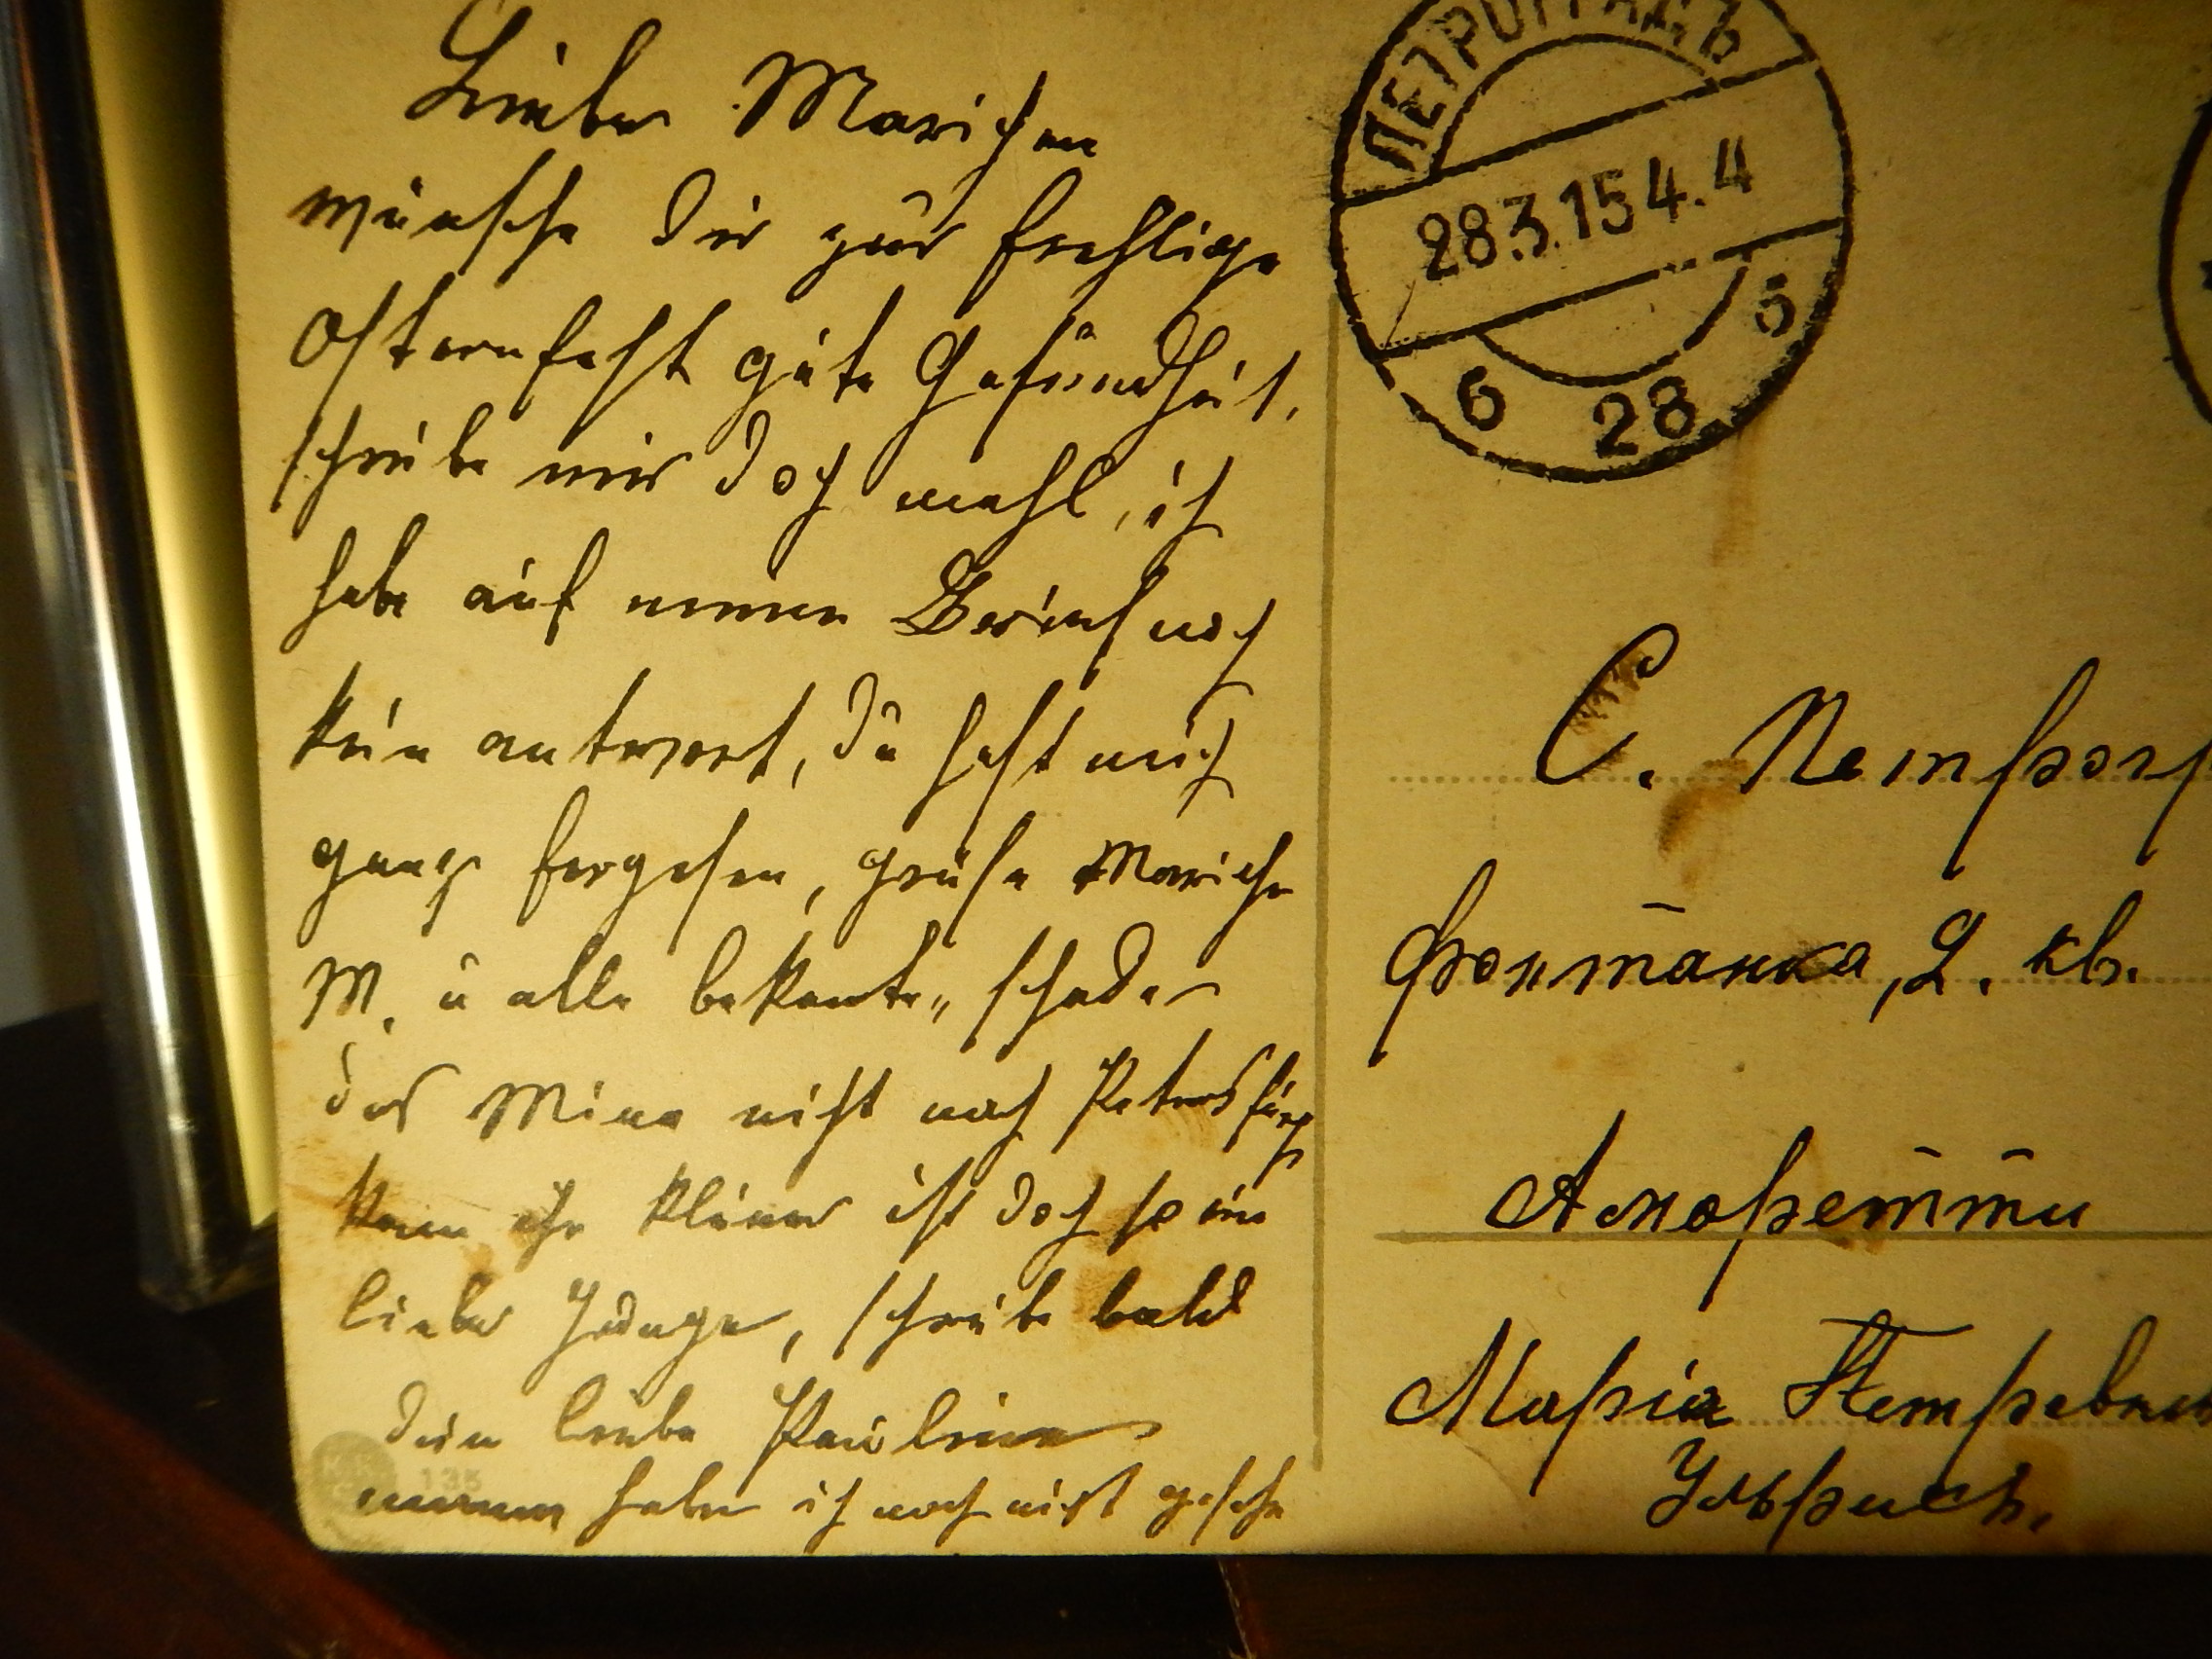 Liebes Marichen
wünsche dir zur frehlige
Osternfest gute Gesundheit,
schreibe mir doch mahl, ich
habe auf meinen Brief noch
kein antwort, du hast mich
ganz fergesen, grüse Mariche
M. u alle bekante, schade
das Mina nicht nach Petersburg
kam ihr kleiner ist doch so ein
lieber Junge, schreibe bald
dein liebe Pauline
haben ich noch nicht gesehe
ПЕТРОГРАДЪ
28.3.15 4. 4
6 28 5
С. Петербор
Фонтанка, 2. кв.
Аморетти
Марія Петровна
Ульрихъ.